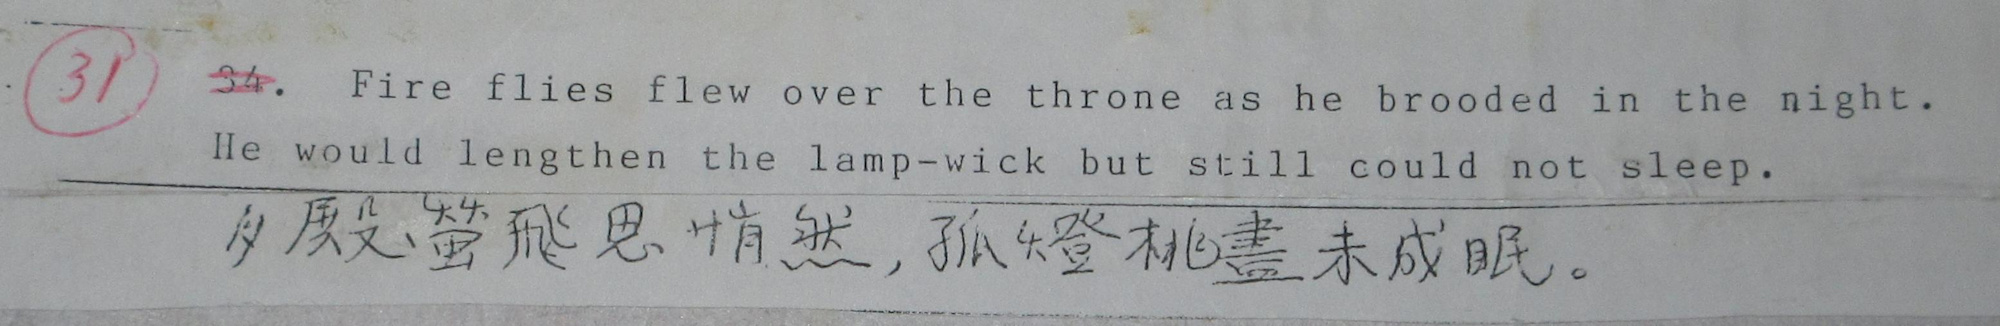 31 34. Fire flies flew over the throne as he brooded in the night.
He would lengthen the lamp-wick but still could not sleep.
夕殿螢飛思悄然,孤燈桃盡未成眠。